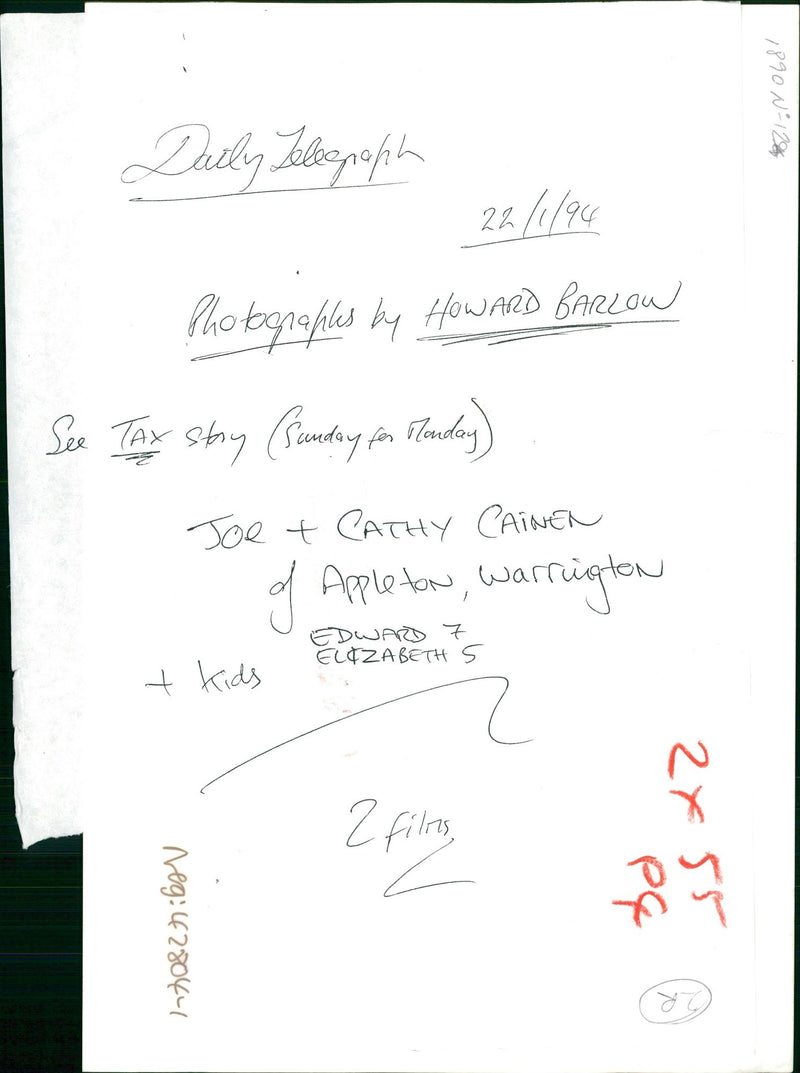 Daily Telegraph
22/1/94
Photographs by HOWARD BARLOW
See TAX story (Sunday for Monday)
JOE + CATHY CAINEN
of Appleton, Warrington
EDWARD 7
ELIZABETH 5
+ kids
2 films
2x 55
P4
Neg: 42804-1
2R
1890 N-12